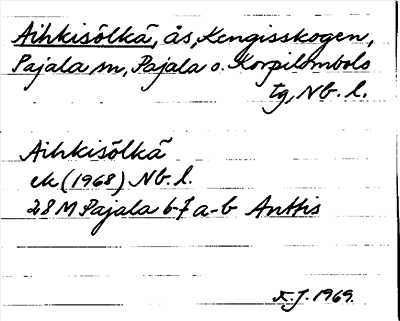 Aihkisölkä, ås, Kengisskogen,
Pajala sn, Pajala o. Korpilombolo
tg, Nb. l.
Aihkisölkä
ek (1968) Nb. l.
28 M Pajala 6-7 a-b Anttis
F.J. 1969.